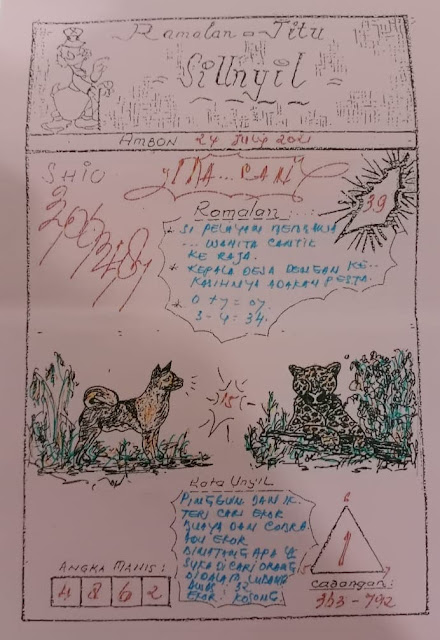 Ramalan = Jitu
= SiUnyil =
AMBON 24 JULY 2021
SHIO
39
Ramalan:
* SI PELAYAN MEMBAWA
... WANITA CANTIK
KE RAJA.
* KEPALA DESA DENGAN KE..
KASIHNYA ADAKAN PESTA.
* 0 + 7 = 07
3 - 4 = 34.
15
Kata Unyil
PINGGUN DAN IK.
TERI CARI EKOR
BUAYA DAN COBRA
EKOR
BINATANG APA YG
SUKA DICARI ORANG
DIDALAM LUBANG
32
EKOR : KOSONG
ANGKA MANIS:
4 8 6 2
6
1
CABANGAN:
353 - 792